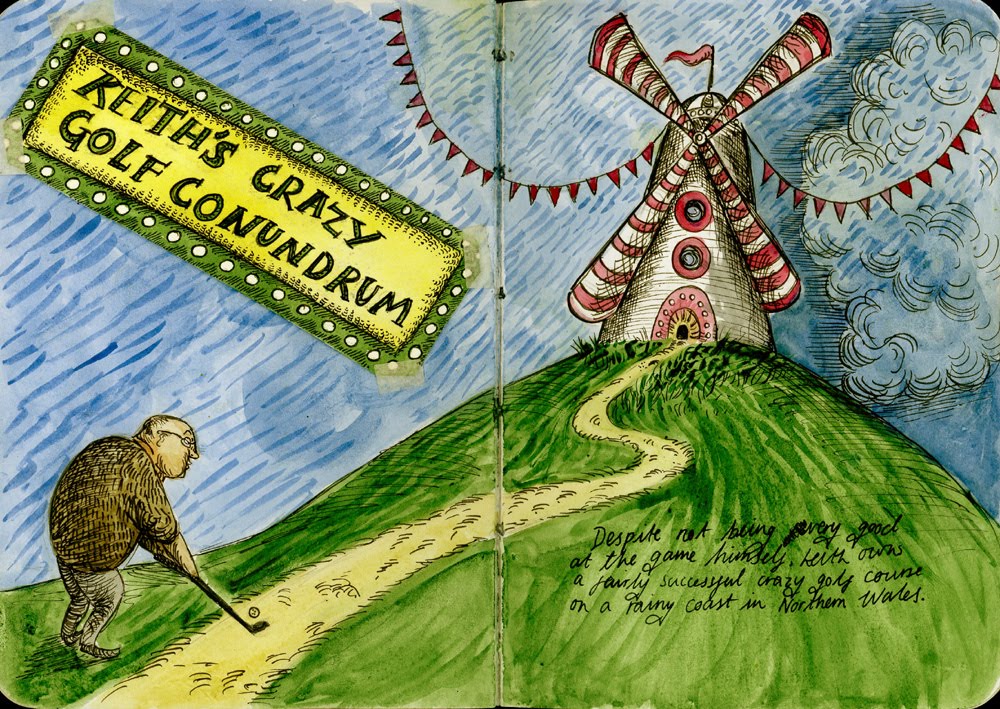 KEITH'S CRAZY
GOLF CONUNDRUM
Despite not being very good
at the game himself, Keith owns
a fairly successful crazy golf course
on a rainy coast in Northern Wales.